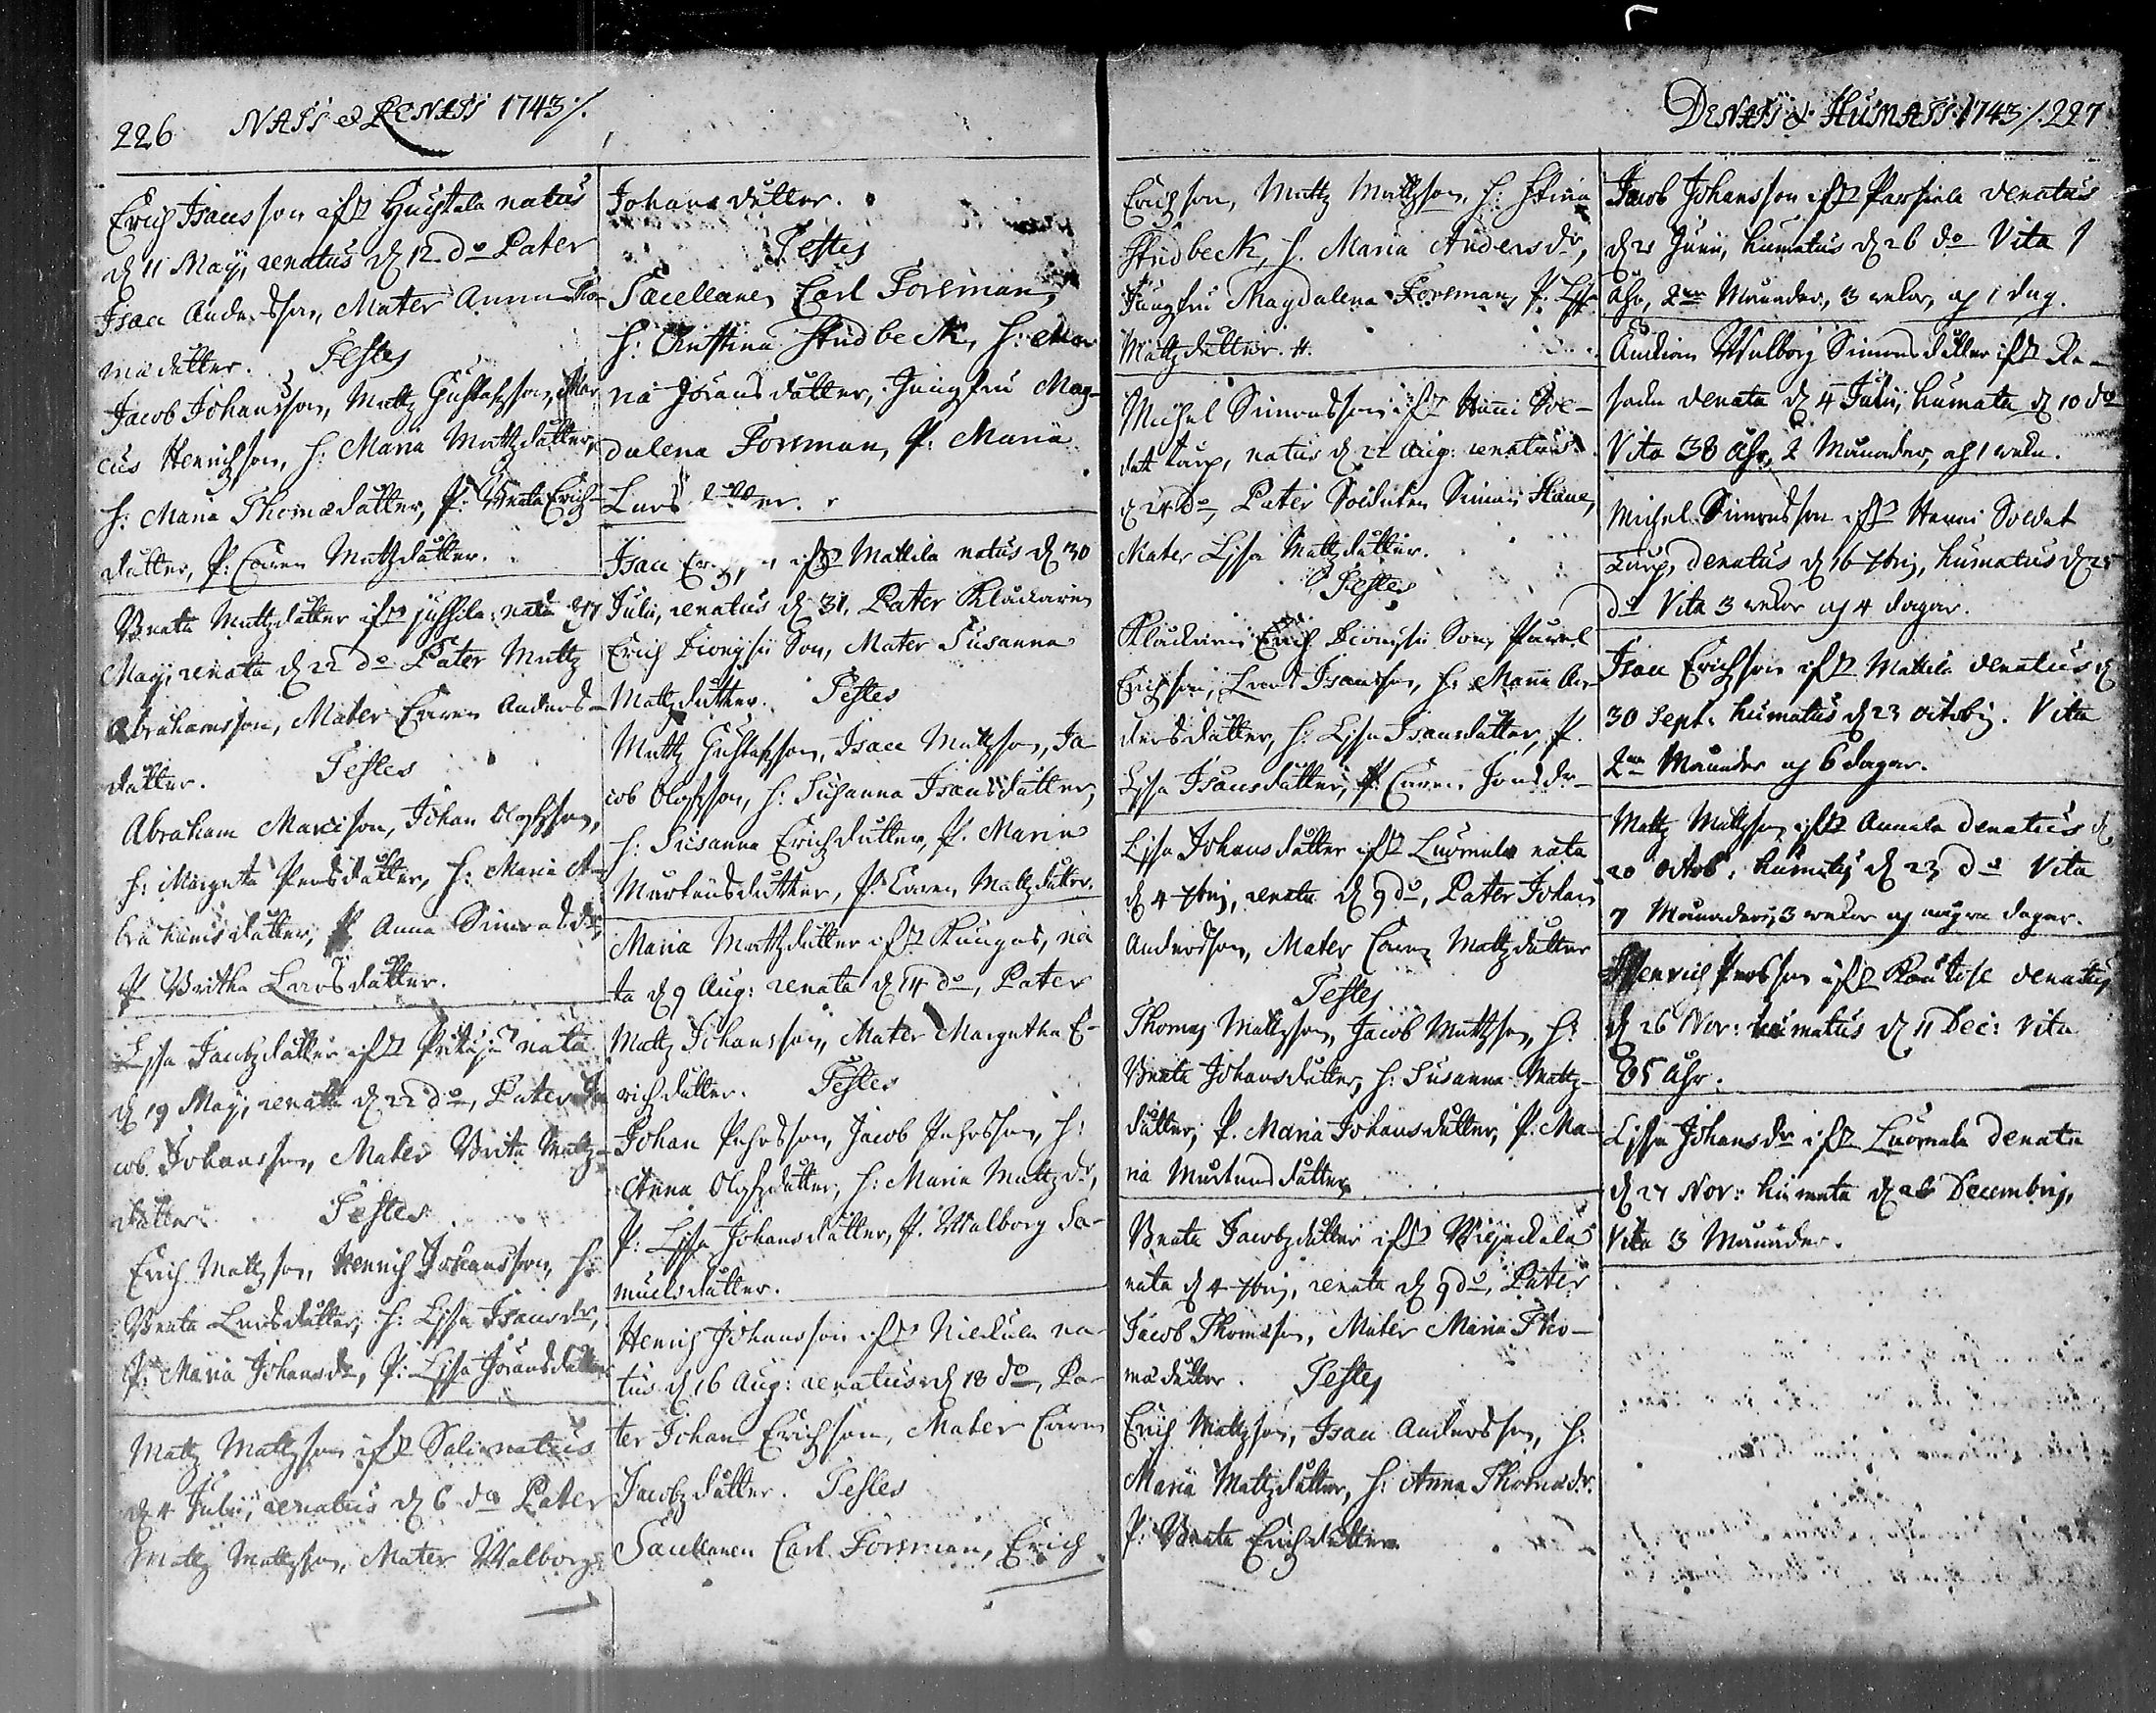 226 NATI & RENATI 1743 /.
Erich Isacsson ifr: Gustala natus
d 11 Maij, renatus d 12 do Pater
Isac Andersson, Mater Anna Tho-
mædotter. Testes
Jacob Johansson, Mattz Gustafsson, Mar
cus Henrichson, h: Maria Mattzdotter,
h: Maria Thomædotter, P: Beata Erich-
dotter, P: Caren Mattzdotter.
Beata Mattzdotter ifr: Jussila nata d 17
Maij, renata d 22 do Pater Mattz
Abrahamsson, Mater Caren Anders-
dotter. Testes
Abraham Marcison, Johan Olofsson,
h: Margeta Persdotter, h: Maria A-
brahamsdotter, P Anna Simonsdr,
P Britha Larsdotter.
Lisa Jacobzdotter ifr: nata
d 19 Maij, renata d 22 do, Pater Ja
cob Johansson, Mater Brita Mattz-
dotter. Testes
Erich Mattzson, Henrich Johansson, h:
Beata Larsdotter, h: Lisa Isacsdr,
P: Maria Johansdr, P: Lisa Joransdotter
Mattz Mattzson ifr: Sali natus
d 4 Julii, renatus d 6 do Pater
Mattz Mattzson, Mater Walborg
Johansdotter.
Testes
Sacellanen Carl Forsman,
h: Christina Studbeck, h: Mar
na Joransdotter, Jungfru Mag-
dalena Forsman, P: Maria
Lars
Isac ifr: Mattila natus d 30
Julii, renatus d 31. Pater Klockaren
Erich Dionysii Son, Mater Susanna
Mattzdotter. Testes
Mattz Gustafsson, Isac Mattzson, Ja-
cob Olofsson, h: Susanna Isacsdotter,
h: Susanna Erichdotter, P. Maria
Martensdotter, P: Caren Mattzdotter.
Maria Mattzdotter ifr: Kangas, na
ta d 9 Aug: renata d 14 do, Pater
Mattz Johansson, Mater Margetha E-
richdotter. Testes
Johan Pehrsson, Jacob Pehrsson, h:
Anna Olofsdotter, h: Maria Mattzdr,
P: Lisa Johansdotter, P. Walborg Sa-
muelsdotter.
Henrich Johansson ifr: Nickula na-
tus d 16 Aug: renatus d 18 do, Pa-
ter Johan Erichson, Mater Caren
Jacobzdotter. Testes
Sacellanen Carl Forsman, Erich
Erichson, Mattz Mattzson, h: Stina
Studbeck, h. Maria Andersdr,
Jungfru Magdalena Forsman, P: Lisa
Mattzdotter.
Michel Simonsson ifr: Hanni Sol-
dat torp, natus d 22 Aug: renatus
d 24 do, Pater Soldaten Simon Hane,
Mater Lisa Mattzdotter.
Testes
Klockaren Erich Dionysii Son, Pavel
Erichson, Lars Isacsson, h: Maria An-
dersdotter, h: Lisa Isacsdotter, P.
Lisa Isacsdotter, P: Caren Jonsdr
Lisa Johansdotter ifr: Luomala nata
d 4 7brij, renata d 9 do, Pater Johan
Andersson, Mater Caren Mattzdotter
Testes
Thomas Mattzson, Jacob Mattzson, h:
Beata Johansdotter, h: Susanna Mattz-
dotter, P. Maria Johansdotter, P: Ma-
ria Martensdotter
Beata Jacobzdotter ifr:
nata d 4 7brij, renata d 9 do, Pater
Jacob Thomasson, Mater Maria Tho-
mædotter. Testes
Erich Mattzson, Isac Andersson, h:
Maria Mattzdotter, h: Anna Thomædr.
P: Beata Erichdotter
DENATI & HUMATI: 1743 /. 227
Jacob Johansson ifr: Passiala denatus
d 21 Junii, humatus d 26 do Vita 1
åhr, 2ne Månader, 3 wekor, og 1 dag.
Enckian Walborg Simonsdotter ifr: Ra-
denata d 4 Julii, humata d 10 do
Vita 38 åhr, 2 Månader, og 1 weka.
Michel Simonsson ifr: Hanni Soldat
Torp, denatus d 16 7brij, humatus d 25
do Vita 3 wekor og 4 dagar.
Isac Erichson ifr: Mattila denatus d
30 Sept: humatus d 23 octobr. Vita
2ne Månader og 6 dagar.
Mattz Mattzson ifr: Annala denatus d
20 octob: humatus d 23 do Vita
7 Månader, 3 wekor og några dagar.
Henrich Persson ifr: denatus
d 26 Nov: humatus d 11 Dec: Vita
85 åhr.
Lisa Johansdr ifr: Luomala denata
d 27 Nov: humata d 26 Decembris,
Vita 3 Månader.